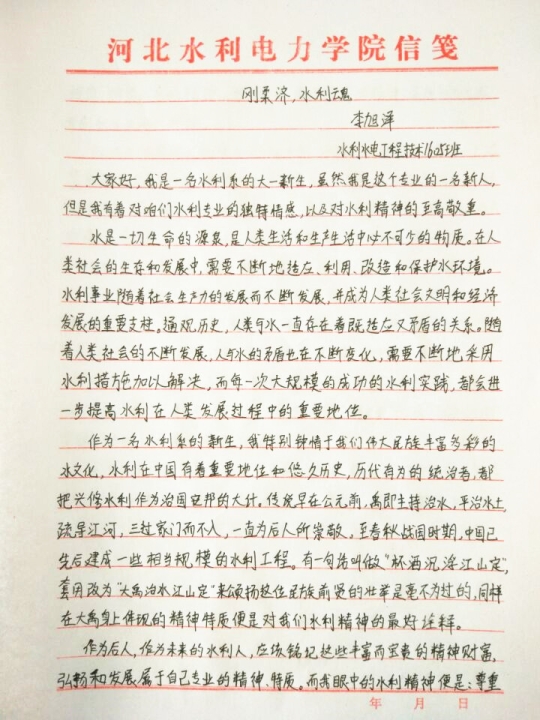 河北水利电力学院信笺
刚柔济,水利魂
李旭泽
水利水电工程技术1605班
大家好,我是一名水利系的大一新生,虽然我是这个专业的一名新人,
但是我有着对咱们水利专业的独特情感,以及对水利精神的至高敬重。
水是一切生命的源泉,是人类生活和生产生活中必不可少的物质。在人
类社会的生存和发展中,需要不断地适应、利用、改造和保护水环境。
水利事业随着社会生产力的发展而不断发展,并成为人类社会文明和经济
发展的重要支柱。通观历史,人类与水一直存在着既适应又矛盾的关系。随
着人类社会的不断发展,人与水的矛盾也在不断变化,需要不断地采用
水利措施加以解决,而每一次大规模的成功的水利实践,都会进
一步提高水利在人类发展过程中的重要地位。
作为一名水利系的新生,我特别钟情于我们伟大民族丰富多彩的
水文化,水利在中国有着重要地位和悠久历史,历代有为的统治者,都
把兴修水利作为治国安邦的大计。传说早在公元前,禹即主持治水,平治水土,
疏导江河,三过家门而不入,一直为后人所崇敬。至春秋战国时期,中国已
先后建成一些相当规模的水利工程。有一句话叫做“杯酒沉浮江山定”,
套用改为“大禹治水江山定”来颂扬这位民族前贤的壮举是毫不为过的,同样
在大禹身上体现的精神特质便是对我们水利精神的最好诠释。
作为后人,作为未来的水利人,应该铭记这些丰富而宝贵的精神财富,
弘扬和发展属于自己专业的精神、特质。而我眼中的水利精神便是:尊重
年 月 日